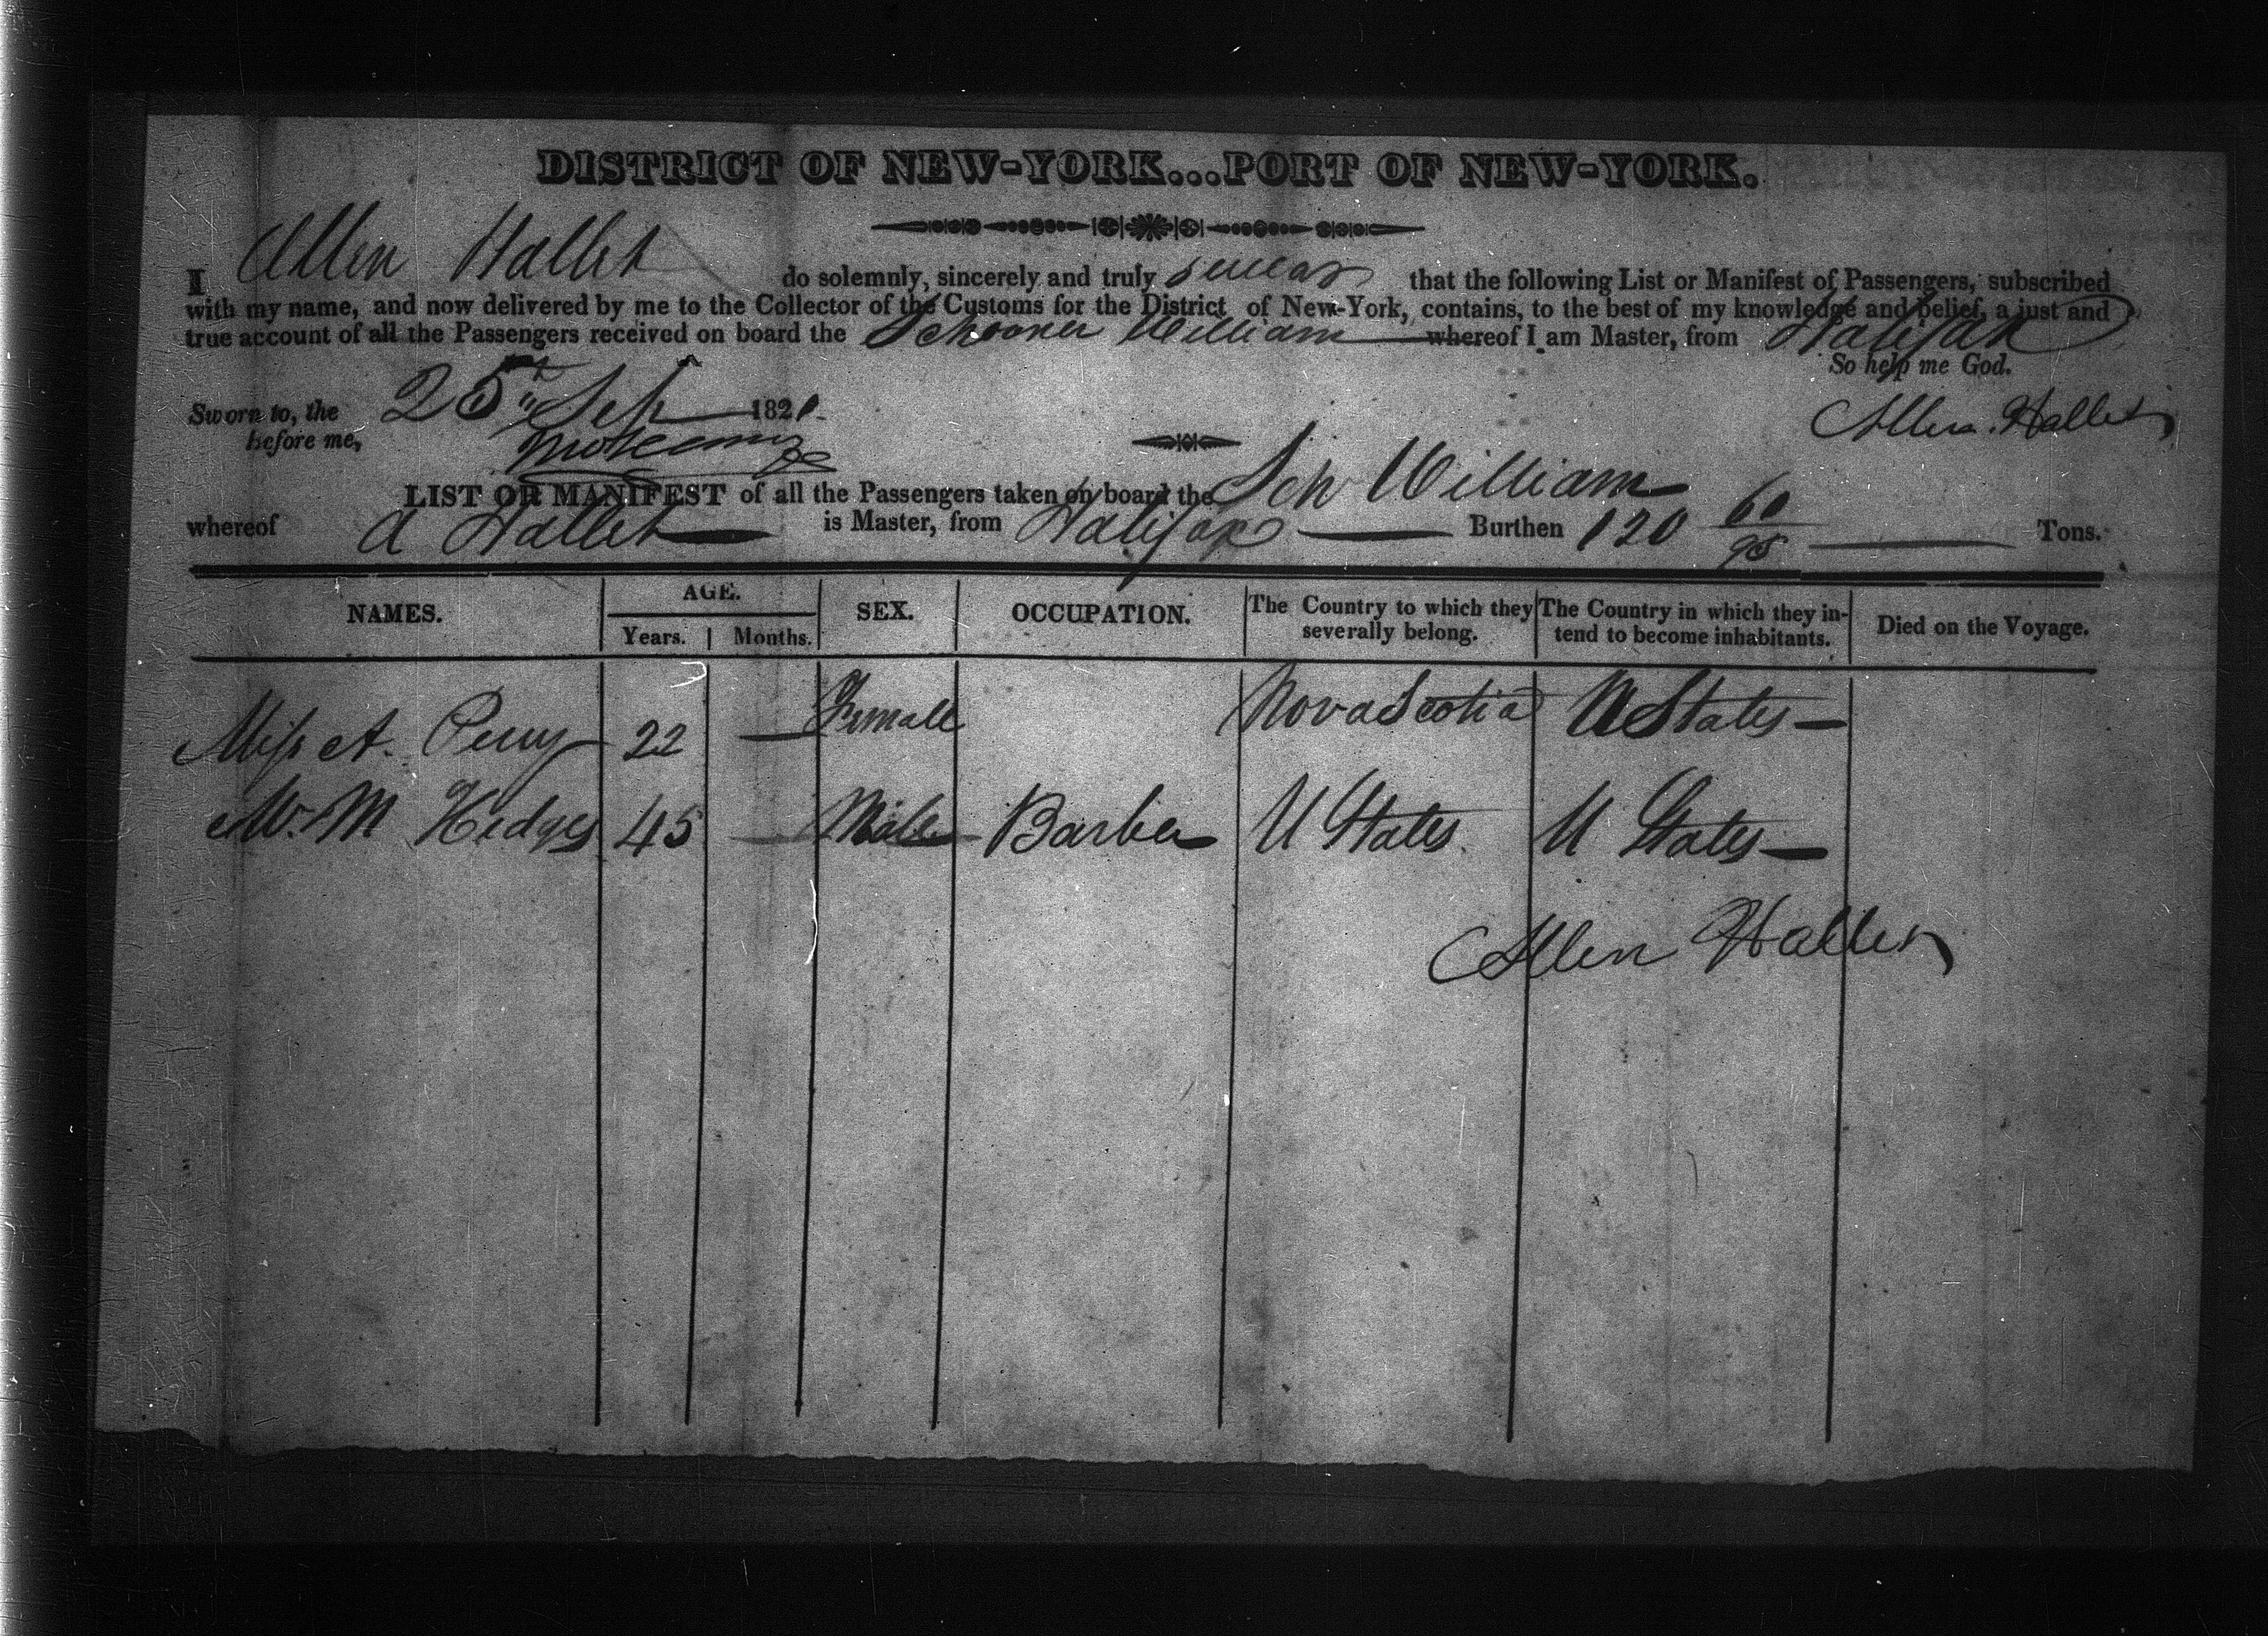 DISTRICT OF NEW-YORK...PORT OF NEW-YORK.
I Allen Hallet do solemnly, sincerely and truly swear that the following List or Manifest of Passengers, subscribed
with my name, and now delivered by me to the Collector of the Customs for the District of New-York, contains, to the best of my knowledge and belief, a just and
true account of all the Passengers received on board the Schooner William whereof I am Master, from Halifax
So help me God.
Sworn to, the 25th Sep 1821
Allen Hallet
before me,
LIST OR MANIFEST of all the Passengers taken on board the Sch William
whereof A Hallet is Master, from Halifax Burthen 120 60/95 Tons.
NAMES. AGE. SEX. OCCUPATION. The Country to which they severally belong. The Country in which they intend to become inhabitants. Died on the Voyage.
Years. Months.
Miss A. Perry 22 — Female Nova Scotia U States —
Mr. M Hedges 45 — Male Barber U States U States —
Allen Hallet